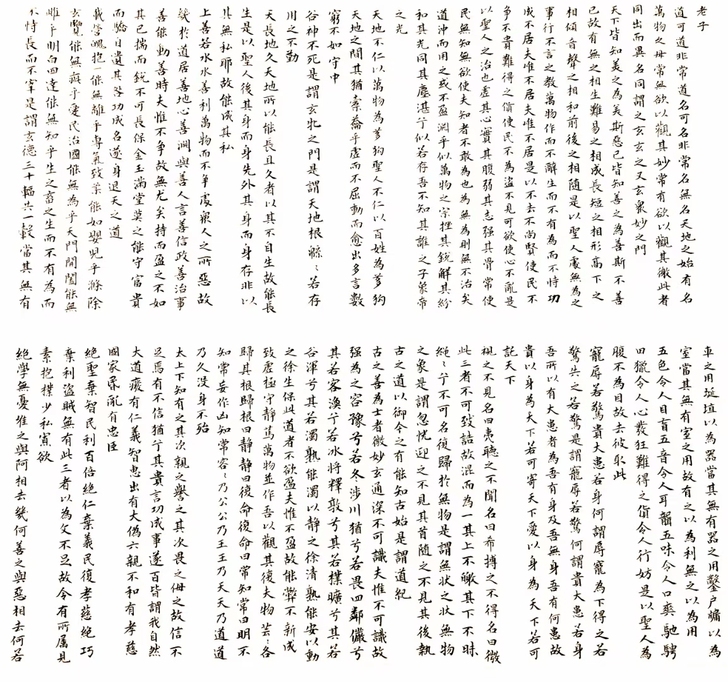 老子
道可道非常道名可名非常名無名天地之始有名
萬物之母常無欲以觀其妙常有欲以觀其徼此者
同出而異名同謂之玄玄之又玄衆妙之門
天下皆知美之為美斯惡已皆知善之為善斯不善
已故有無之相生難易之相成長短之相形高下之
相傾音聲之相和前後之相隨是以聖人處無為之
事行不言之教萬物作而不辭生而不有為而不恃功
成不居夫唯不居夫唯不居是以不去不尚賢使民不
爭不貴難得之貨使民不為盜不見可欲使心不亂是
以聖人之治也虛其心實其腹弱其志強其骨常使
民無知無欲使夫知者不敢為也為無為則無不治矣
道沖而用之或不盈淵乎似萬物之宗挫其銳解其紛
和其光同其塵湛兮似若存吾不知其誰之子象帝
之先
天地不仁以萬物為芻狗聖人不仁以百姓為芻狗
天地之間其猶橐籥乎虛而不屈動而愈出多言數
窮不如守中
谷神不死是謂玄牝之門是謂天地根緜〻若存
用之不勤
天長地久天地所以能長且久者以其不自生故能長
生是以聖人後其身而身先外其身而身存非以
其無私耶故能成其私
上善若水水善利萬物而不爭處衆人之所惡故
幾於道居善地心善淵與善人言善信政善治事
善能動善時夫惟不爭故無尤矣持而盈之不如
其已揣而銳不可長保金玉滿堂莫之能守富貴
而驕自遺其咎功成名遂身退天之道
載營魄抱一能無離乎專氣致柔能如嬰兒乎滌除
玄覽能無疵乎愛民治國能無為乎天門開闔能無
雌乎明白四達能無知乎生之畜之生而不有為而
不恃長而不宰是謂玄德三十輻共一轂當其無有
車之用埏埴以為器當其無有器之用鑿戶牖以為
室當其無有室之用故有之以為利無之以為用
五色令人目盲五音令人耳聾五味令人口爽馳騁
田獵令人心發狂難得之貨令人行妨是以聖人為
腹不為目故去彼取此
寵辱若驚貴大患若身何謂辱寵為下得之若
驚失之若驚是謂寵辱若驚何謂貴大患若身
吾所以有大患者為吾有身及吾無身吾有何患故
貴以身為天下若可寄天下愛以身為天下若可
託天下
視之不見名曰夷聽之不聞名曰希搏之不得名曰微
此三者不可致詰故混而為一其上不皦其下不昧
繩〻兮不可名復歸於無物是謂無狀之狀無物
之象是謂忽恍迎之不見其首隨之不見其後執
古之道以御今之有能知古始是謂道紀
古之善為士者微妙玄通深不可識夫惟不可識故
強為之容豫兮若冬涉川猶兮若畏四鄰儼兮
其若客渙兮若冰將釋敦兮其若樸曠兮其若
谷渾兮其若濁孰能濁以靜之徐清孰能安以動
之徐生保此道者不欲盈夫惟不盈故能弊不新成
致虛極守靜篤萬物並作吾以觀其復夫物芸〻各
歸其根歸根曰靜靜曰復命復命曰常知常曰明不
知常妄作凶知常容〻乃公公乃王王乃天天乃道道
乃久沒身不殆
太上下知有之其次親之譽之其次畏之侮之故信不
足焉有不信猶兮其貴言功成事遂百皆謂我自然
大道廢有仁義智惠出有大偽六親不和有孝慈
國家昏亂有忠臣
絕聖棄智民利百倍絕仁棄義民復孝慈絕巧
棄利盜賊無有此三者以為文不足故令有所屬見
素抱樸少私寡欲
絕學無憂唯之與阿相去幾何善之與惡相去何若